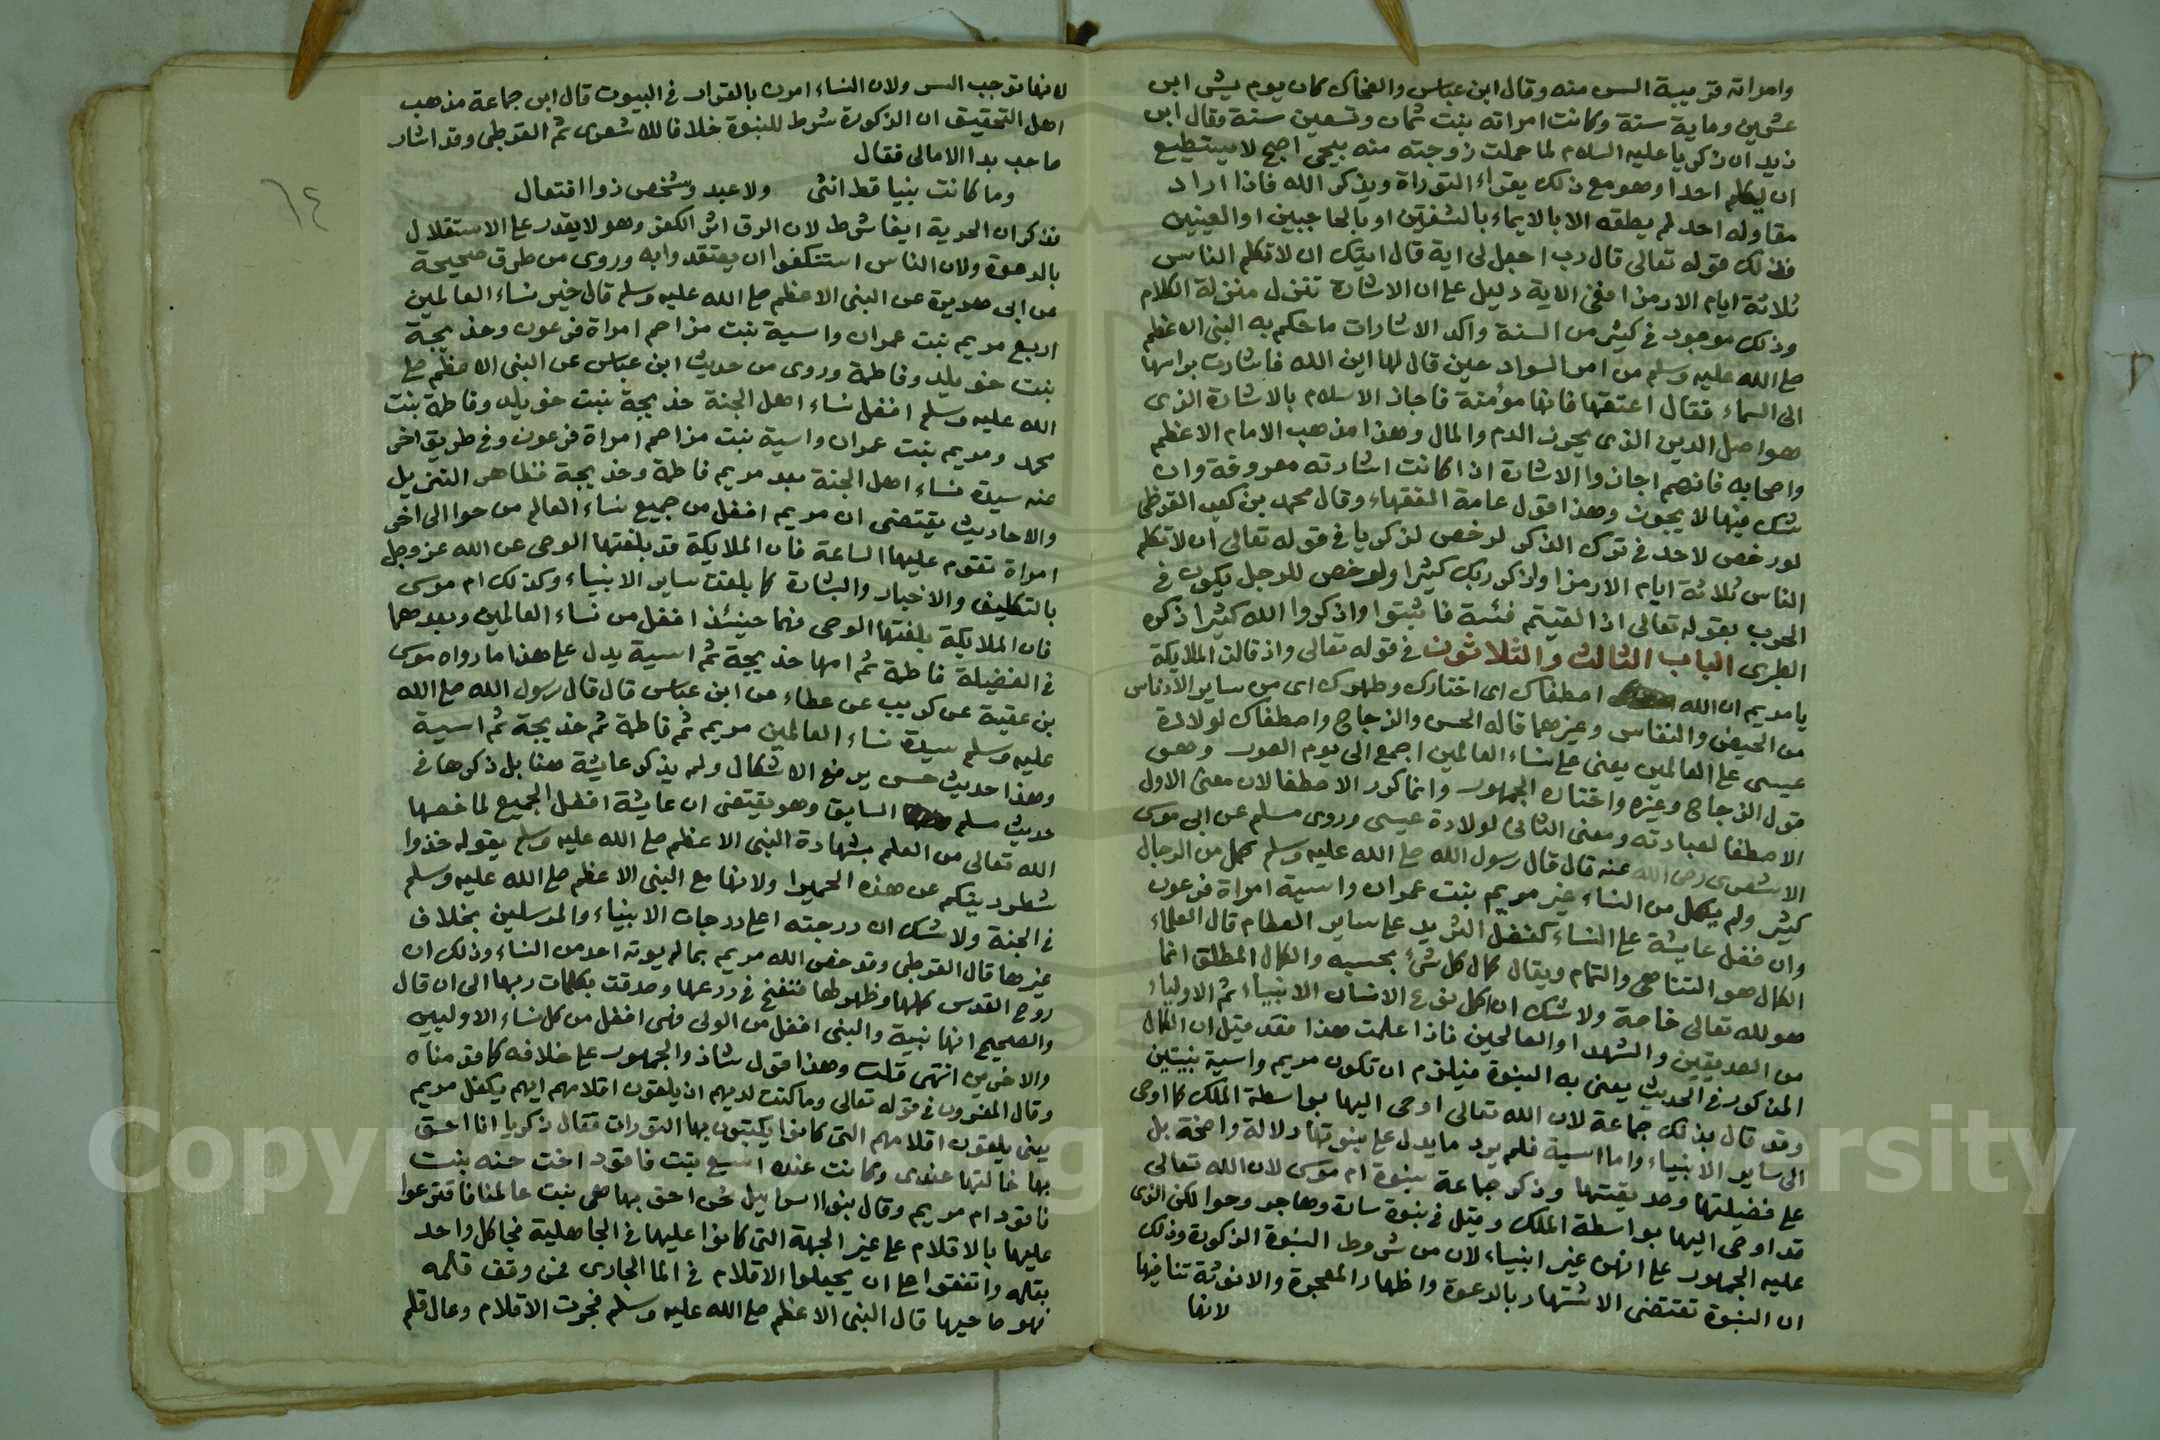 وامراته قريبة السن منه وقال ابن عباس والضحاك كان يوم بشر ابن
عشرين وماية سنة وكانت امراته بنت ثمان وتسعين سنة وقال ابن
زيد ان زكريا عليه السلام لما حملت زوجته منه بيحيى اصبح لا يستطيع
ان يكلم احدا وهو مع ذلك يقراء التوراة ويذكر الله فاذا اراد
مقاولة احد لم يطقه الا بالايماء بالشفتين او بالحاجبين او العينين
فذلك قوله تعالى قال رب اجعل لي اية قال ايتك ان لا تكلم الناس
ثلاثة ايام الا رمزا ففي الاية دليل على ان الاشارة تنزل منزلة الكلام
وذلك موجود في كثير من السنة واكد الاشارات ما حكم به النبي الاعظم
صلى الله عليه وسلم من امر السواد حين قال لها اين الله فاشارت براسها
الى السماء فقال اعتقها فانها مؤمنة فاجاز الاسلام بالاشارة الذي
هو اصل الدين الذي يحوز الدم والمال وهذا مذهب الامام الاعظم
واصحابه فانهم اجازوا الاشارة اذا كانت اشارته معروفة وان
شك فيها لا يجوز وهذا قول عامة الفقهاء وقال محمد بن كعب القرظي
لو رخص لاحد في ترك الذكر لرخص لزكريا في قوله تعالى ان لا تكلم
الناس ثلاثة ايام الا رمزا واذكر ربك كثيرا ولو رخص للرجل يكون في
الحرب بقوله تعالى اذا لقيتم فئة فاثبتوا واذكروا الله كثيرا ذكره
الطبري الباب الثالث والثلاثون في قوله تعالى واذ قالت الملايكة
يا مريم ان الله اصطفاك اي اختارك وطهرك اي من ساير الادناس
من الحيض والنفاس وغيرهما قاله الحسن والزجاج واصطفاك لولادة
عيسى على العالمين يعني على نساء العالمين اجمع الى يوم الصور وهو
قول الزجاج وغيره واختاره الجمهور وانما كرر الاصطفا لان معنى الاول
الاصطفا لعبادته ومعنى الثاني لولادة عيسى وروى مسلم عن ابي موسى
الاشعري رضي الله عنه قال قال رسول الله صلى الله عليه وسلم كمل من الرجال
كثير ولم يكمل من النساء غير مريم بنت عمران واسية امراة فرعون
وان فضل عايشة على النساء كفضل الثريد على ساير الطعام قال العلماء
الكمال هو التناهي والتمام ويقال كمال كل شيء بحسبه والكمال المطلق انما
هو لله تعالى خاصة ولا شك ان اكمل نوع الانسان الانبياء ثم الاولياء
من الصديقين والشهدا والصالحين فاذا علمت هذا فقد قيل ان الكمال
المذكور في الحديث يعني به النبوة فيلزم ان تكون مريم واسية نبيتين
وقد قال بذلك جماعة لان الله تعالى اوحى اليها بواسطة الملك كما اوحى
الى ساير الانبياء واما اسية فلم يرد ما يدل على نبوتها دلالة واضحة بل
على فضيلتها وصديقيتها وذكر جماعة بنبوة ام موسى لان الله تعالى
قد اوحى اليها بواسطة الملك وقيل في نبوة سارة وهاجر وحوا لكن الذي
عليه الجمهور على انهن غير انبياء لان من شروط النبوة الذكورة وذلك
ان النبوة تقتضي الاشتهار بالدعوة واظهار المعجزة والانوثة تنافيها
لانها
لانها توجب الستر ولان النساء امرن بالقرار في البيوت قال ابن جماعة مذهب
اهل التحقيق ان الذكورة شرط للنبوة خلافا للاشعري ثم القرطبي وقد اشار
صاحب بدا الامالي فقال
وما كانت نبيا قط انثى ولا عبد وشخص ذوا افتعال
فذكر ان الحرية ايضا شرط لان الرق اثر الكفر وهو لا يقدر على الاستقلال
بالدعوة ولان الناس استنكفوا ان يعتقدوا به وروى من طرق صحيحة
عن ابي هريرة عن النبي الاعظم صلى الله عليه وسلم قال خير نساء العالمين
اربع مريم بنت عمران واسية بنت مزاحم امراة فرعون وخديجة
بنت خويلد وفاطمة وروى من حديث ابن عباس عن النبي الاعظم صلى
الله عليه وسلم افضل نساء اهل الجنة خديجة بنت خويلد وفاطمة بنت
محمد ومريم بنت عمران واسية بنت مزاحم امراة فرعون وفي طريق اخر
عنه سيدة نساء اهل الجنة بعد مريم فاطمة وخديجة فظاهر التنزيل
والاحاديث يقتضي ان مريم افضل من جميع نساء العالم من حوا الى اخر
امراة تقوم عليها الساعة فان الملايكة قد بلغتها الوحي عن الله عز وجل
بالتكليف والاخبار والبشارة كما بلغت ساير الانبياء وكذلك ام موسى
فان الملايكة بلغتها الوحي فهما حينئذ افضل من نساء العالمين وبعدهما
في الفضيلة فاطمة ثم امها خديجة ثم اسية يدل على هذا ما رواه موسى
بن عقبة عن كريب عن عطاء عن ابن عباس قال قال رسول الله صلى الله
عليه وسلم سيدة نساء العالمين مريم ثم فاطمة ثم خديجة ثم اسية
وهذا حديث حسن يرفع الاشكال ولم يذكر عايشة هنا بل ذكرها في
حديث مسلم السابق وهو يقتضي ان عايشة افضل الجميع لما خصها
الله تعالى من العلم بشهادة النبي الاعظم صلى الله عليه وسلم بقوله خذوا
شطر دينكم عن هذه الحميرا ولانها مع النبي الاعظم صلى الله عليه وسلم
في الجنة ولا شك ان درجته اعلى درجات الانبياء والمرسلين بخلاف
غيرها قال القرطبي وقد خص الله مريم بما لم يوته احد من النساء وذلك ان
روح القدس كلمها وظهر لها فنفخ في درعها وصدقت بكلمات ربها الى ان قال
والصحيح انها نبية والنبي افضل من الولي فهي افضل من كل نساء الاولين
والاخرين انتهى قلت وهذا قول شاذ والجمهور على خلافه كما قدمناه
وقال المفسرون في قوله تعالى وما كنت لديهم اذ يلقون اقلامهم ايهم يكفل مريم
يعني يلقون اقلامهم التي كانوا يكتبون بها التورات فقال زكريا انا احق
بها خالتها عندي وكانت عنده اشيع بنت فاقود اخت حنه بنت
فاقود ام مريم وقال بنوا اسراييل نحن احق بها هي بنت عالمنا فاقترعوا
عليها بالاقلام على غير الجهة التي كانوا عليها في الجاهلية فجا كل واحد
بقلمه واتفقوا على ان يجعلوا الاقلام في الما الجاري فمن وقف قلمه
فهو صاحبها قال النبي الاعظم صلى الله عليه وسلم فجرت الاقلام وعال قلم
٦٤
Copyright © King Saud University